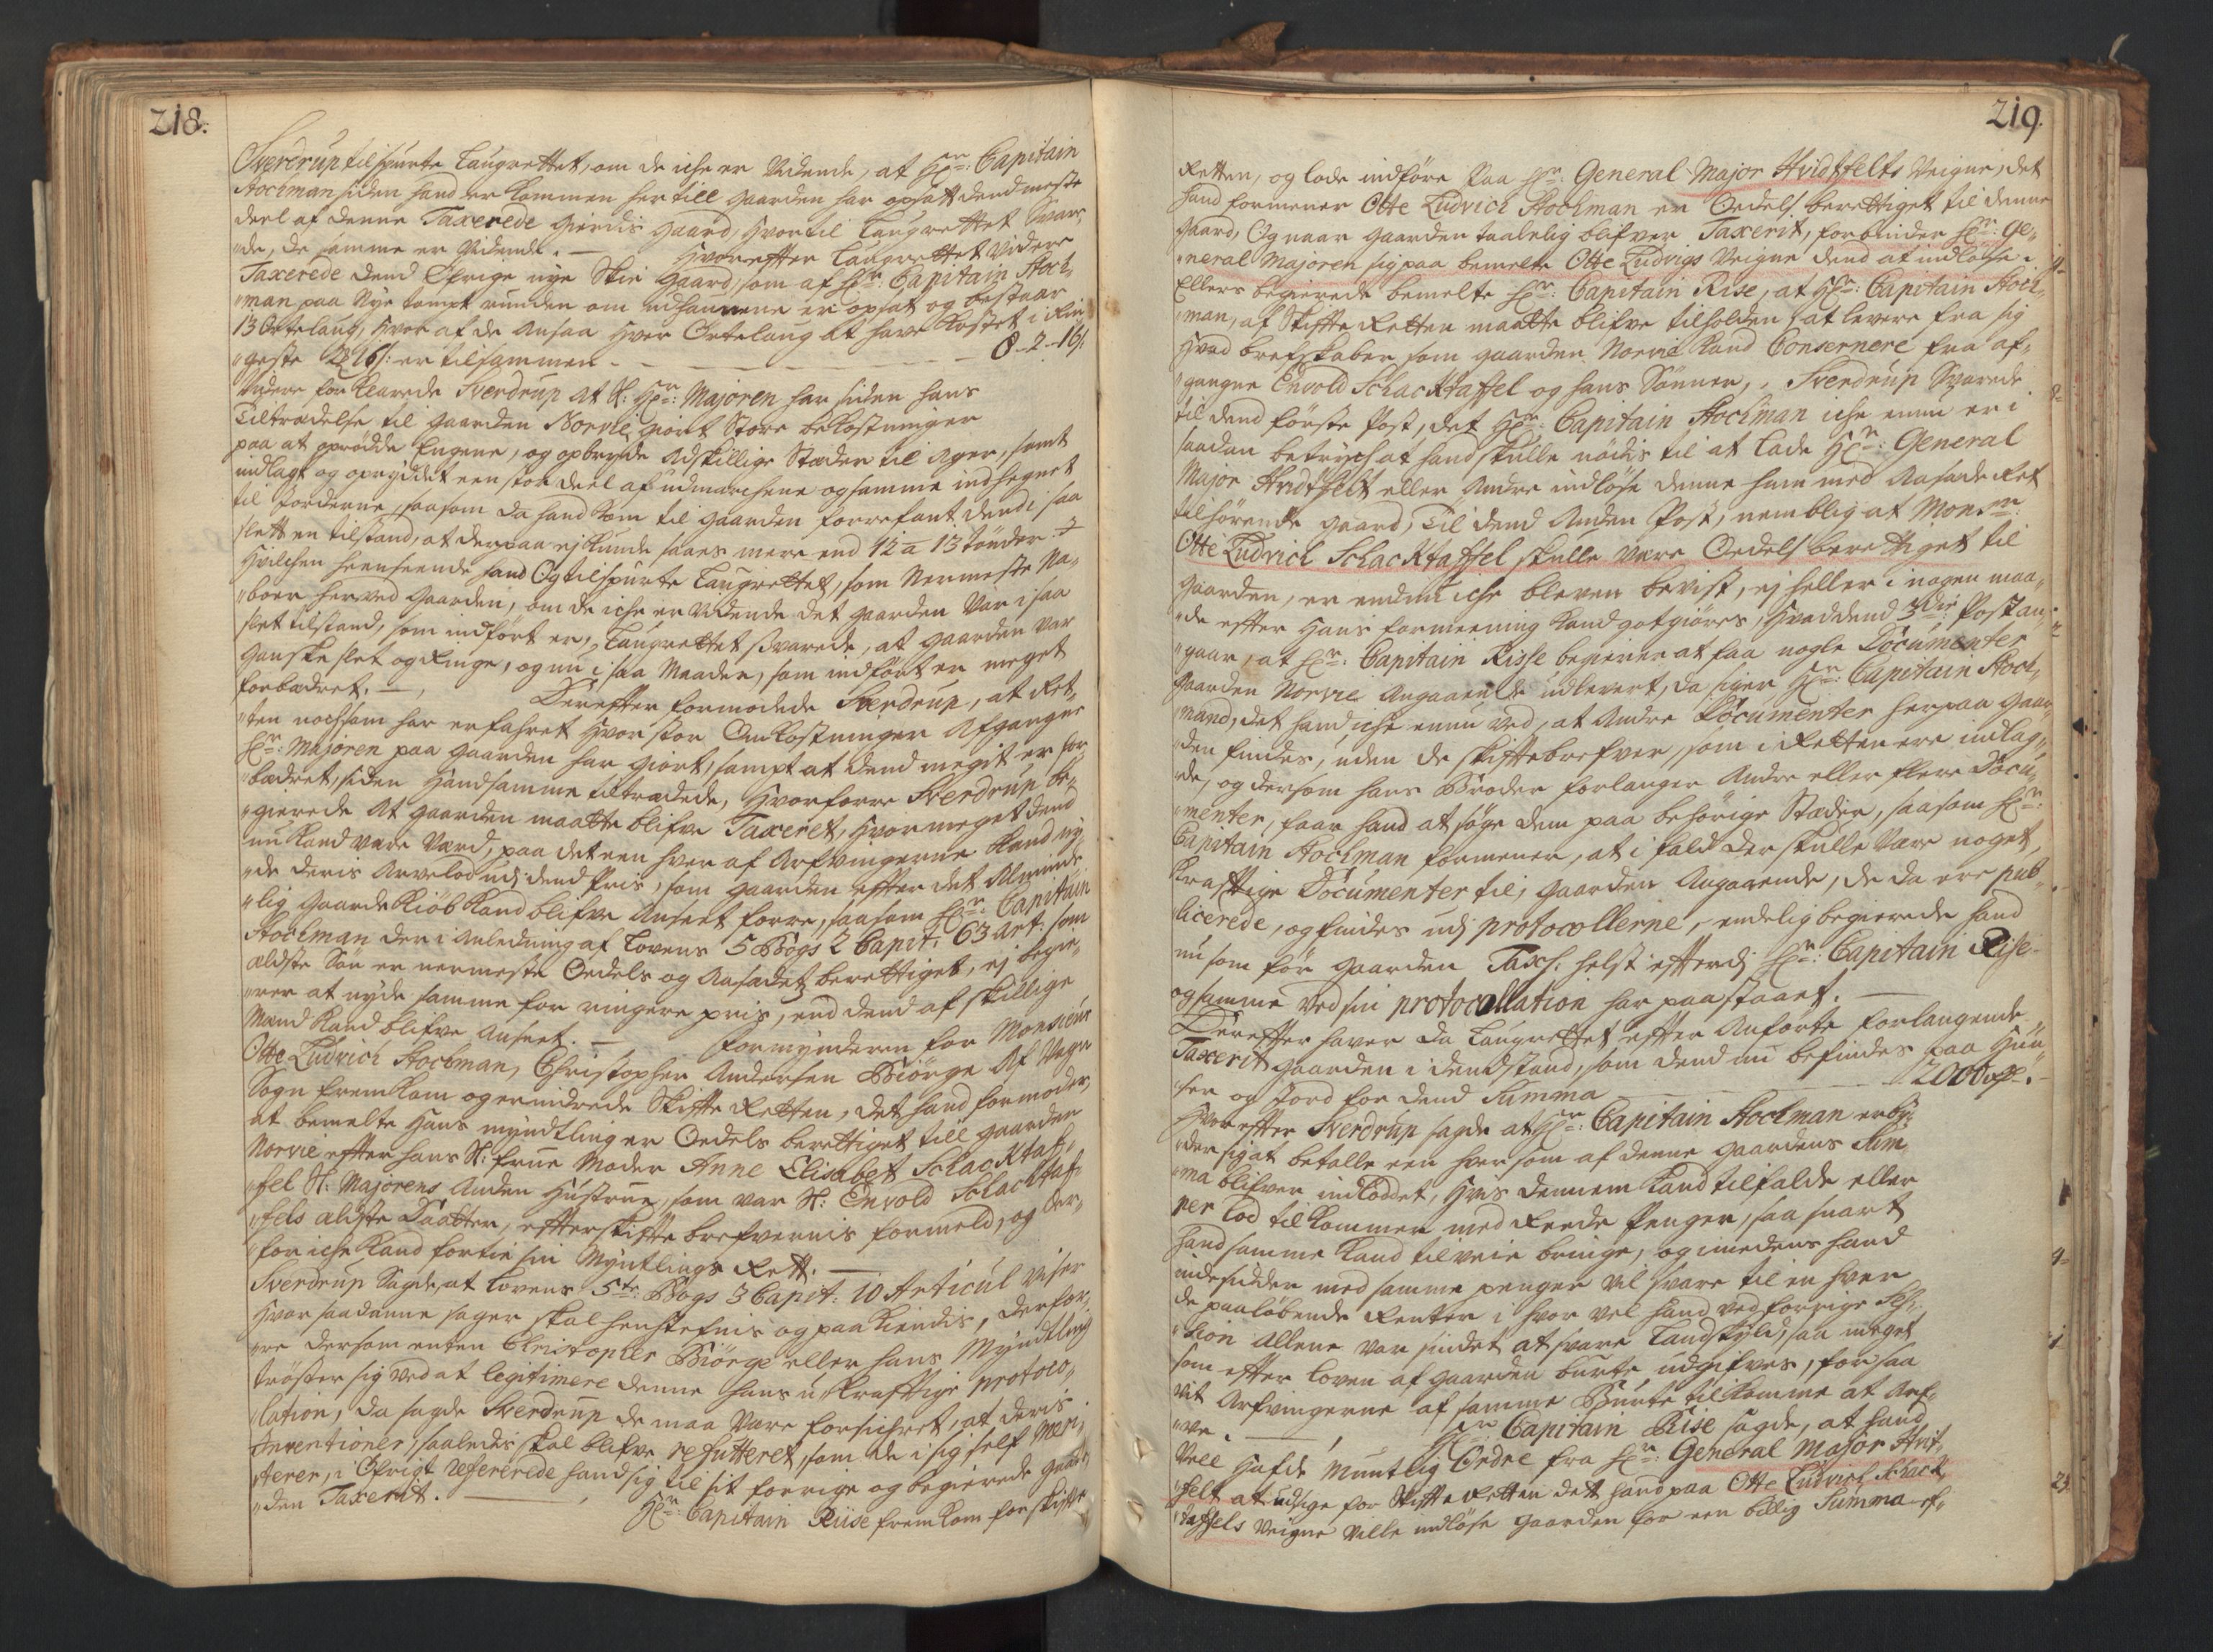 218.
Sverdrup tilspurte Laugrettet, om de iche er Vidende, at Hr: Capitain
Stochman siden hand er kommen her till gaarden har opsatt dend meste
deel af denne Taxerede gierdis gaard, hvortil Laugrettet Svar„
„ede, de samme er Vidende. — Hvorefter Laugrettet Videre
Taxerede dend Øfrige nye Skie gaard, som af Hr: Capitain Stoch„
„man paa Nye tompt runden om udhaunene er opsat og bestaar
13 Ortelaug, hvor af de Ansaa hver Ortelaug at have kostet i Rin„
„geste 2 16 s: er tilsammen - - - - - 8 - 2 - 16 s:
Videre forklarede Sverdrup at S: Hr: Majoren har siden hans
Tiltrædelse til gaarden Norvie, giort Store bekostninger
paa at oprødde Engene, og opbryde Adskillige Stæder til Ager, samt
indlagt og opryddet een stor deel af udmarchene og samme indhegnet
til Jorderne, saasom da hand kom til gaarden forrefant dend i saa
slett en tilstand, at derpaa ej kunde saaes mere end 12 a 13 tønder
Hvilchen henseende hand Og tilspurte Laugrettet, som Nermeste Na„
„boer herved gaarden, om de iche er Vidende det gaarden Var i saa
slet tilstand, som indført er, Laugrettet svarede, at gaarden var
ganske slet og Ringe, og nu i saa Maader, som indført er meget
forbædret. — Derefter formodede Sverdrup, at Ret„
„ten nochsom har erfahret hvor stor Omkostninger Afgangne
Hr: Majoren paa gaarden har giort, sampt at dend megit er for„
„bædret, siden hand samme tiltrædede, hvorforre Sverdrup be„
„gierede at gaarden maatte blifve Taxeret, hvor meget dend
nu kand være Værd, paa det een hver af Arfvingerne kand ny„
„de deris Arvelod udj dend Pris, som gaarden efter det Alminde„
„lig gaarde kiøb kand blifve Anseet forre, saasom Hr: Capitain
Stochman der i Anledning af Lovens 5 Bogs 2 Capit: 63 art: som
ældste Søn er nermeste Oedels og Aasædet berettiget, ej begie„
„rer at nyde samme for ringere pris, end dend af skillige
Mænd kand blifve Anseet. — Formynderen for Monsieur
Otte Ludvich Stochman, Christopher Andersen Biørge Af Vaagn
Sogn fremkom og erindrede Skifte Retten, det hand formoder,
at bemelte hans myndtling er Oedels berettiget till gaarden
Norvie efter hans S: frue Moder Anne Elisabet Schacktaf„
„fel S: Majorens Anden Hustrue, som var S: Envold Schacktaf„
„fels ældste Daatter, efter skifte brefvernis formeld, og der„
„for iche kand fortie sin Myntlings Rett. —
Sverdrup Sagde, at Lovens 5te: Bogs 3 Capit: 10 Articul viser
hvor saadanne sager skal henstefnis og paakiendis, derfor„
„re dersom enten Christopher Biørge eller hans Myndtling
trøster sig ved at legitimere denne hans u-kraftige protoco„
„lation, da sagde Sverdrup de maa Være forsichret, at deris
Inventioner, saaledis skal blifve refutteret, som de i sig self Meri„
„terer, i Øfrigt refererede hand sig til sit forrige og begierede gaar„
„den Taxerdt. — Hr: Capitain Riise fremkom for skifte
219.
Retten, og lode indføre paa Hr: General-Major Hvidtfelts Veigne, det
hand formener Otte Ludvich Stochman er Oedels berettiget til denne
gaard, Og naar gaarden taalelig blifver Taxerit, forbinder Hr: Ge„
„neral Majoren sig paa bemelte Otte Ludvigs Veigne dend at indløse.
Ellers begierede bemelte Hr: Capitain Rise, at Hr: Capitain Stoch„
„man, af Skifte Retten maatte blifve tilholden, at levere fra sig
hvad brefskaber som gaarden Norvie kand Consernere fra af„
„gangne Envold Schacktaffel og hans Sønner, Sverdrup Svarede
til dend første Post, det Hr: Capitain Stochman iche ennu er i
saadan betrych at hand skulle nødis til at lade Hr: General
Major Hvidtfelt eller Andre indløse denne ham med Aasæde Ret
tilhørende gaard, Til dend Anden Post, nemblig at Monsr:
Otte Ludvich Schacktaffel skulle være Oedels berettiget til
gaarden, er endnu iche bleven bevist, ej heller i nogen maa„
„de efter hans formeening kand gotgiøres, hvad dend 3die Post an„
„gaar, at Hr: Capitain Risse begierer at faa nogle Documenter
gaarden Norvie Angaaende udlevert, da siger Hr: Capitain Stoch„
„mand, det hand iche ennu ved, at Andre Documenter herpaa gaar„
„den findes, uden de skiftebrefver, som i Retten ere indlag„
„de, og dersom hans Broder forlanger Andre eller flere Docu„
„menter, faar hand at søge dem paa behørige Stæder, saasom Hr:
Capitain Stochman formener, at i fald der skulle Være noget
kraftige Documenter til, gaarden Angaaende, de da ere pub„
„licerede, og findes udj protocollerne, endelig begierede hand
nu som før gaarden Taxs: helst efterdj Hr: Capitain Rise
og samme ved sin protocollation har paastaaet. —
Derefter haver da Laugrettet efter Anførte forlangende
Taxerit gaarden i dend stand, som dend nu befindes paa Huu„
„ser og Jord for dend Summa - - - 2000 rdr.
Hvorefter Sverdrup sagde at Hr: Capitain Stochman erby„
„der sig at betalle een hver som af denne gaardens Sum„
„ma blifver indloddet, hvis dennem kand tilfalde eller
per Lod tilkommer med Reede Penger, saa snart
hand samme kand tilveie bringe, og imedens hand
indesidder med samme penger vil svare til en hver
de paaløbende Renter i hvor vel hand ved forrige Ses„
„sion Allene var sindet at svare Landskyld, saa meget
som efter Loven af gaarden burte udgifves, for saa
vit Arfvingerne af samme Burte tilkomme at Arf„
„ve. — Hr: Capitain Rise sagde, at hand
Vell hafde Muntlig Ordre fra Hr: General Major Hvit„
„felt at udsige for Skifte Retten det hand paa Otte Ludvich Schack„
„taffels Veigne ville indløse gaarden for een billig Summa ef„